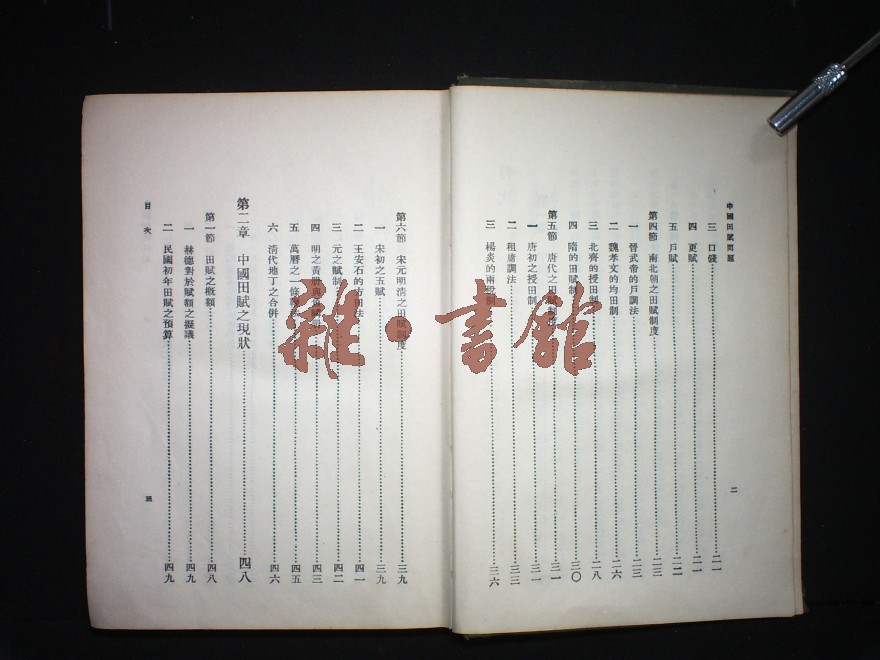 中國田賦問題
三 口錢……二一
四 更賦……二一
五 戶賦……二二
第四節 南北朝之田賦制度……二三
一 晉武帝的戶調法……二三
二 魏孝文的均田制……二六
三 北齊的授田制……二八
四 隋的田賦制……三〇
第五節 唐代之田賦制度……三一
一 唐初之授田制……三一
二 租庸調法……三三
三 楊炎的兩稅制……三六
二
第六節 宋元明清之田賦制度……三九
一 宋初之五賦……三九
二 王安石的方田法……四一
三 元之賦制……四二
四 明之黃册與……四三
五 萬曆之一條鞭法……四五
六 清代地丁之合併……四六
第二章 中國田賦之現狀……四八
第一節 田賦之概額……四八
一 赫德對於賦額之擬議……四九
二 民國初年田賦之預算……四九
目次
三
雜·書館